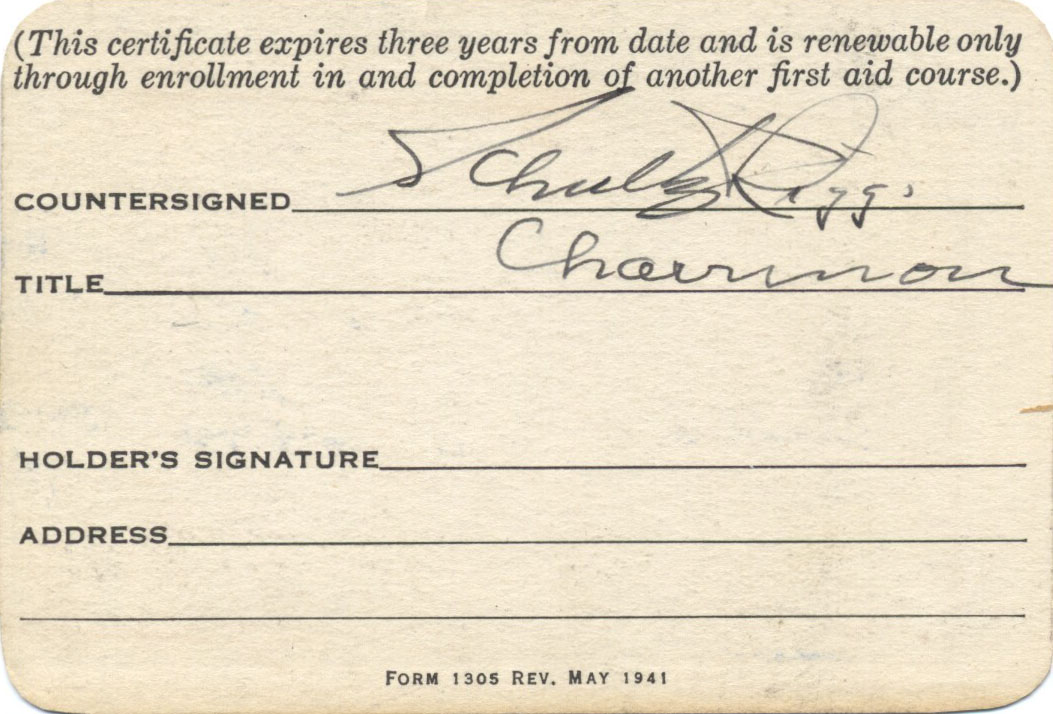 (This certificate expires three years from date and is renewable only
through enrollment in and completion of another first aid course.)
COUNTERSIGNED Schultz Riggs
TITLE Chairman
HOLDER'S SIGNATURE
ADDRESS
FORM 1305 REV. MAY 1941